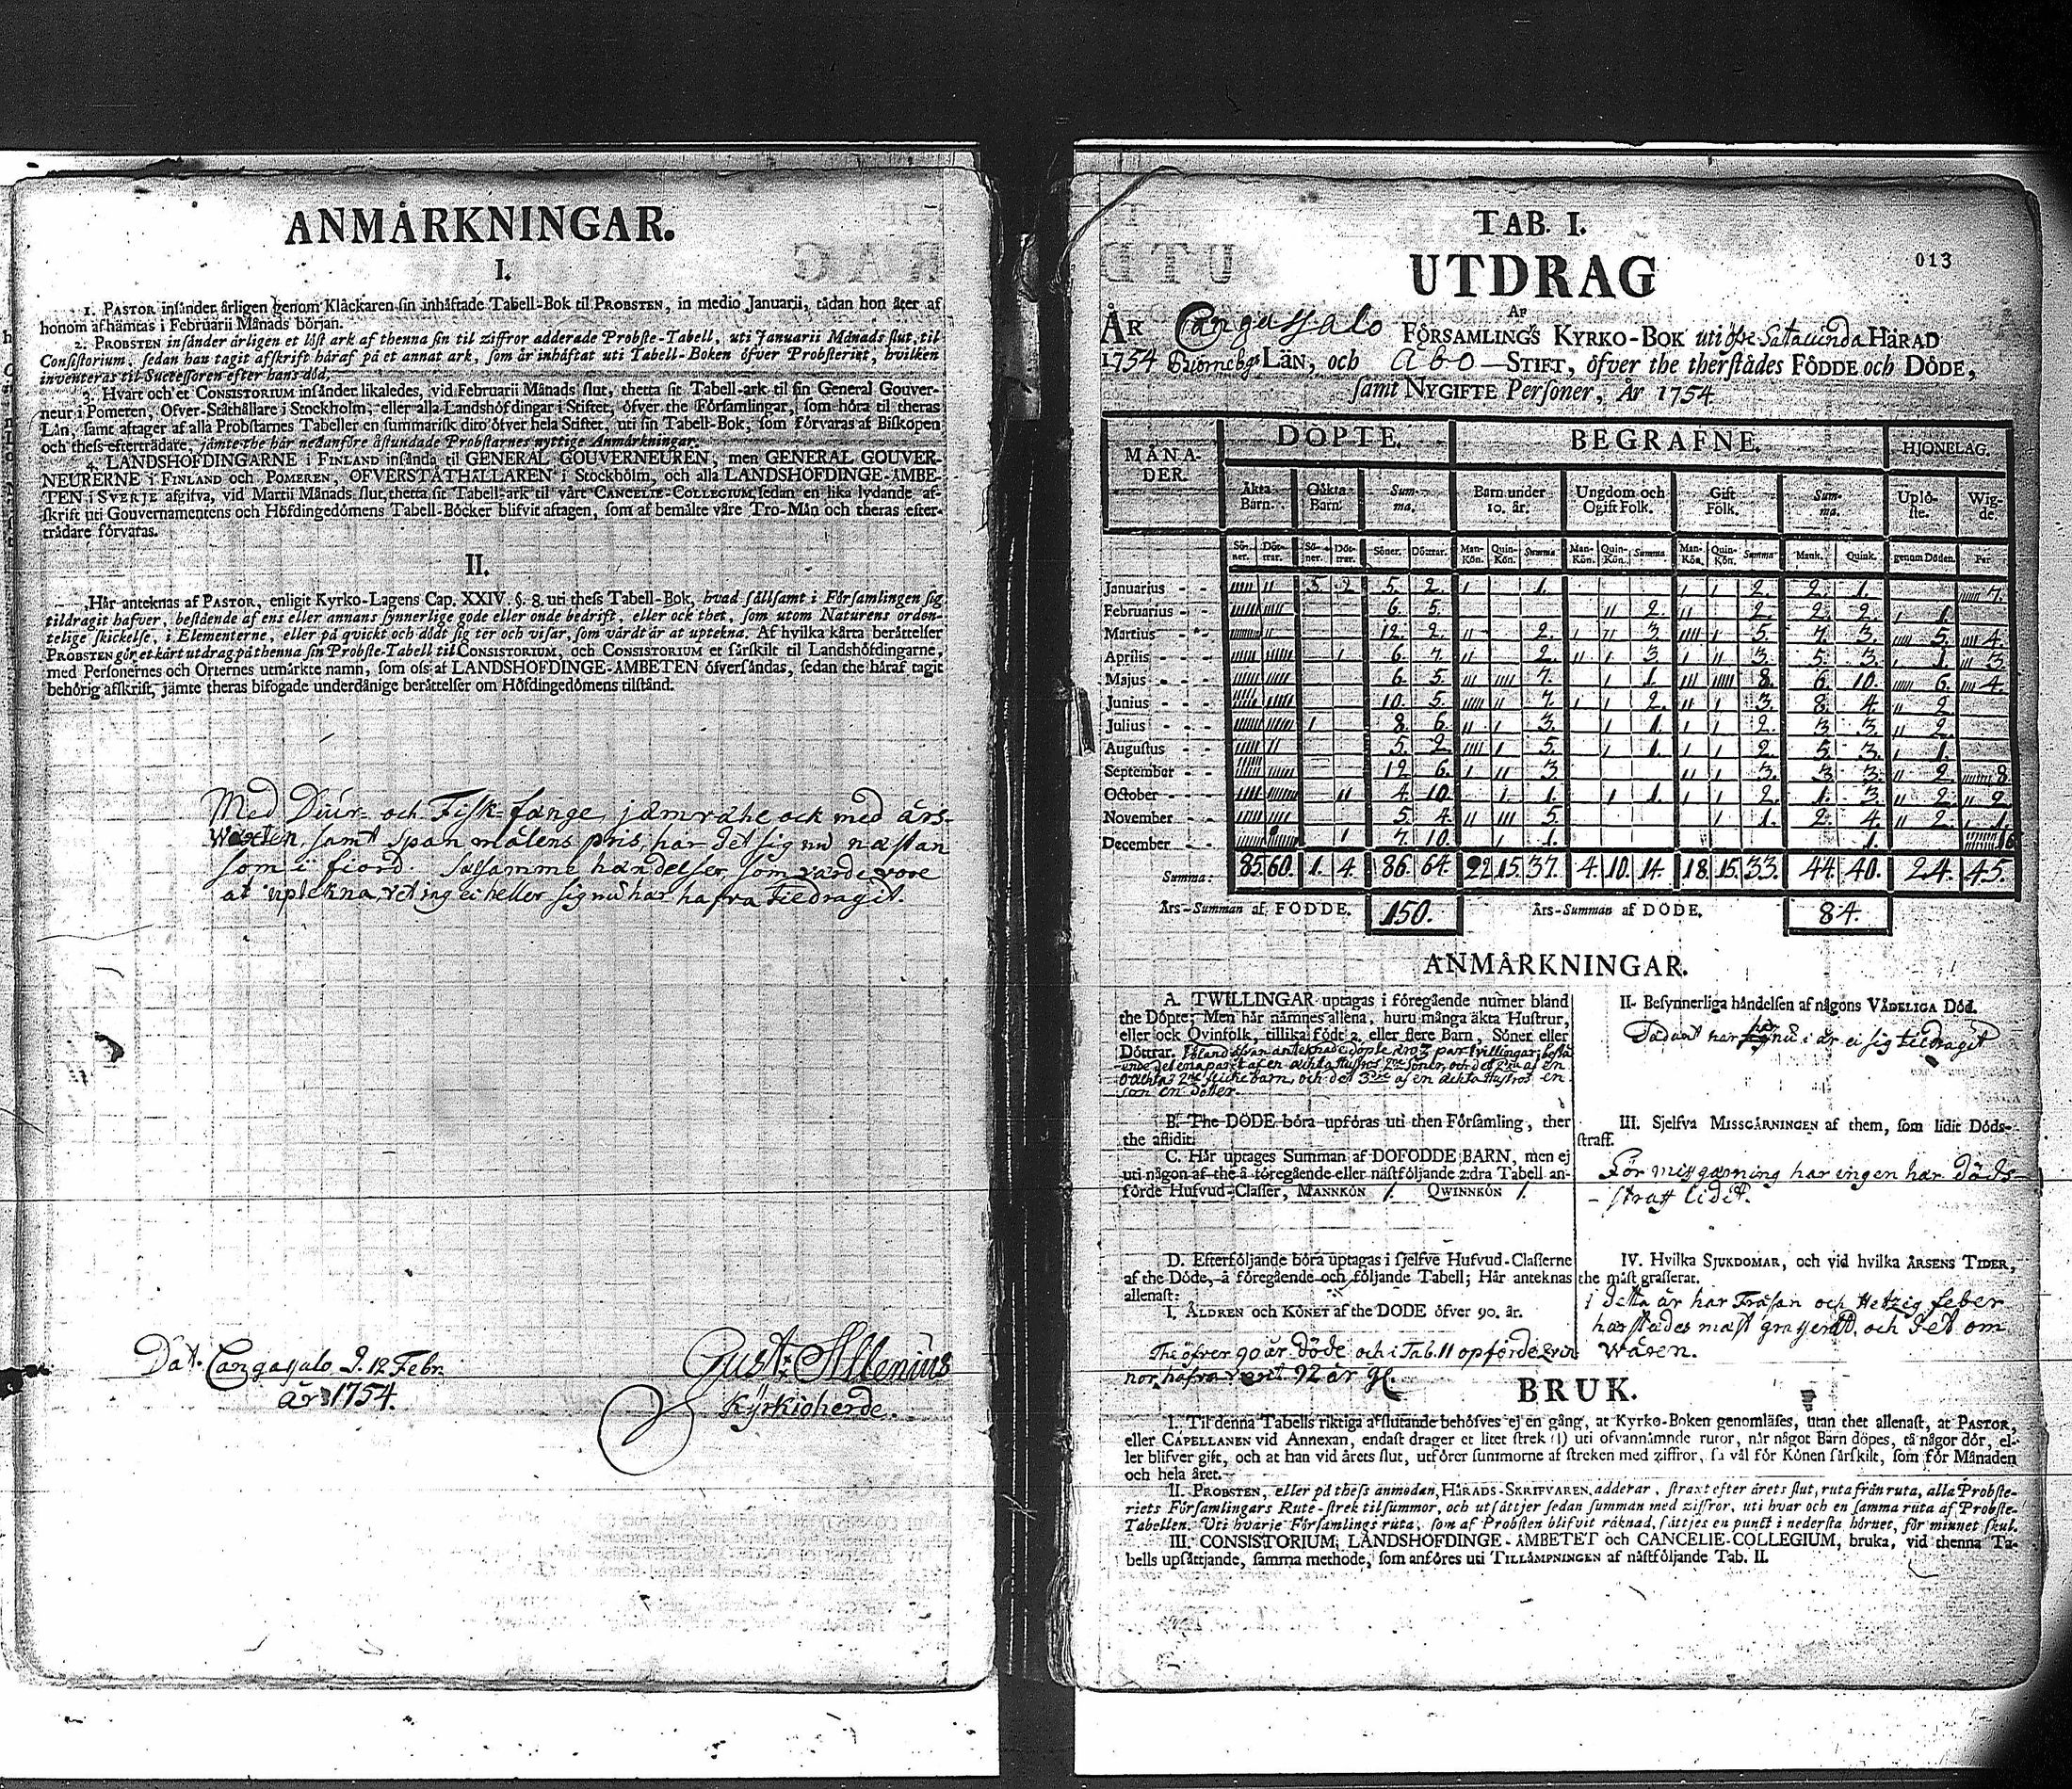 ANMÄRKNINGAR.
I.
1. PASTOR insänder årligen genom Klåckaren sin inhäftade Tabell-Bok til PROBSTEN, in medio Januarii, tådan hon åter af
honom afhämtas i Februarii Månads början.
2. PROBSTEN insänder årligen et löst ark af thenna sin til ziffror adderade Probste-Tabell, uti Januarii Månads slut, til
Consistorium, sedan han tagit afskrift håraf på et annat ark, som är inhäftat uti Tabell-Boken öfver Probsteriet, hvilken
inventeras til Successoren efter hans död.
3. Hvart och et CONSISTORIUM insänder likaledes, vid Februarii Månads slut, thetta sit Tabell-ark til sin General Gouver-
neur i Pomeren, Öfver-Ståthållare i Stockholm, eller alla Landshöfdingar i Stiftet, öfver the Församlingar, som höra til theras
Län, samt aftager af alla Probstarnes Tabeller en summarisk dito öfver hela Stiftet, uti sin Tabell-Bok, som förvaras af Biskopen
och thess efterträdare, jämte the här nedanföre åstundade Probstarnes nyttige Anmärkningar.
4. LANDSHÖFDINGARNE i FINLAND insända til GENERAL GOUVERNEUREN, men GENERAL GOUVER-
NEURERNE i FINLAND och POMEREN, ÖFVERSTÅTHÅLLAREN i Stockholm, och alla LANDSHÖFDINGE-ÄMBE-
TEN i SVERJE afgifva, vid Martii Månads slut, thetta sit Tabell-ark til vårt CANCELIE-COLLEGIUM, sedan en lika lydande af-
skrift uti Gouvernamentens och Höfdingedömens Tabell-Böcker blifvit aftagen, som af bemälte våre Tro-Män och theras efter-
trädare förvaras.
II.
Här anteknas af PASTOR, enligit Kyrko-Lagens Cap. XXIV. §. 8. uti thess Tabell-Bok, hvad sällsamt i Församlingen sig
tildragit hafver, bestående af ens eller annans synnerlige gode eller onde bedrift, eller ock thet, som utom Naturens orden-
telige skickelse, i Elementerne, eller på quickt och dödt sig ter och visar, som värdt är at uptekna. Af hvilka kårta berättelser
PROBSTEN gör et kårt utdrag på thenna sin Probste-Tabell til CONSISTORIUM, och CONSISTORIUM et särskilt til Landshöfdingarne,
med Personernes och Orternes utmärkte namn, som oss af LANDSHÖFDINGE-ÄMBETEN öfversändas, sedan the håraf tagit
behörig afskrift, jämte theras bifogade underdånige berättelser om Höfdingedömens tilstånd.
Med Diur- och Fisk-fänge, jämwähl ock med års-
Wäxten, samt Spanmålens pris, har det sig nu nästan
som i fiord. Sälsamme händelser, som wärde wore
at uptekna, vet ing ei heller sig nu här hafva tiedragit.
Dat. Cangasalo d. 12 Febr.
år 1754.
Gust: Allenius
Kyrkioherde.
013
TAB. I.
UTDRAG
AF
ÅR Cangassalo FÖRSAMLINGS KYRKO-BOK uti öfre Satacunda HÄRAD
1754 Biörnebgs LÄN, och Åbo STIFT, öfver the therstådes FÖDDE och DÖDE,
samt NYGIFTE Personer, År 1754
MÅNA-DER. DÖPTE. BEGRAFNE. HJONELAG.
Äkta Barn. Oäkta Barn. Summa. Barn under 10. år. Ungdom och Ogift Folk. Gift Folk. Summa. Uplö-ste. Wig-de.
Sö-ner. Döt-trar. Sö-ner. Döt-trar. Söner. Döttrar. Man-Kön. Quin-Kön. Summa Man-Kön. Quin-Kön. Summa Man-Kön. Quin-Kön. Summa Mank. Quink. genom Döden. Par
Januarius 5. 2. 1. 2. 2. 1. 7.
Februarius 6. 5. 2. 2. 2. 2. 1.
Martius 12. 2. 2. 3. 5. 7. 3. 5. 4.
Aprilis 6. 7. 2. 3. 3. 5. 3. 1. 3.
Majus 6. 5. 7. 1. 8. 6. 10. 6. 4.
Junius 10. 5. 7. 2. 3. 8. 4. 2.
Julius 8. 6. 3. 1. 2. 3. 3. 2.
Augustus 5. 2. 5. 1. 2. 5. 3. 1.
September 12. 6. 3. 3. 3. 3. 2. 8.
October 4. 10. 1. 1. 2. 1. 3. 2. 2.
November 5. 4. 5. 1. 2. 4. 2. 1.
December 7. 10. 1. 1. 16
Summa: 85. 60. 1. 4. 86. 64. 22. 15. 37. 4. 10. 14. 18. 15. 33. 44. 40. 24. 45.
Års-Summan af FÖDDE. 150. Års-Summan af DÖDE. 84.
ANMÄRKNINGAR.
A. TWILLINGAR uptagas i föregående numer bland
the Döpte; Men här nämnes allena, huru många äkta Hustrur,
eller ock Qvinfolk, tillika födt 2, eller flere Barn, Söner eller
Döttrar. Ibland ofvan anteknade döpte äro 3 par tvillingar, bestå
ende det ena paret af en ächta Hustrus 2ne Söner, och det 2dra af en
oächtas 2ne flickebarn, och det 3dje af en ächta Hustros en
son en dotter.
B. The DÖDE böra upföras uti then Församling, ther
the aflidit.
C. Här uptages Summan af DÖDFÖDDE BARN, men ej
uti någon af the å föregående eller nästföljande 2:dra Tabell an-
förde Hufvud-Classer, MANNKÖN 1. QWINNKÖN 1.
D. Efterföljande böra uptagas i sjelfve Hufvud-Classerne
af the Döde, å föregående och följande Tabell; Här anteknas
allenast:
I. ÅLDREN och KÖNET af the DÖDE öfver 90. år.
The öfver 90 år döde och i Tab. II opförde qvin
nor, hafva varit 92 år gl.
II. Besynnerliga händelsen af någons VÅDELIGA Död.
Sådant har här nu i år ei sig tiedragit
III. Sjelfva MISSGÄRNINGEN af them, som lidit Döds-
straff.
För missgärning har ingen här döds-
- straff lidit.
IV. Hvilka SJUKDOMAR, och vid hvilka ÅRSENS TIDER,
the mäst grasserat.
i detta år har Fråsan och Hetzig feber
härstädes mäst grasserat, och det om
Wåren.
BRUK.
I. Til denna Tabells riktiga afslutande behöfves ej en gång, at Kyrko-Boken genomläses, utan thet allenast, at PASTOR,
eller CAPELLANEN vid Annexan, endast drager et litet strek (I) uti ofvannämnde rutor, när något Barn döpes, tå någor dör, el-
ler blifver gift, och at han vid årets slut, utförer summorne af streken med ziffror, så väl för Könen särskilt, som för Månaden
och hela året.
II. PROBSTEN, eller på thess anmodan, HÄRADS-SKRIFVAREN, adderar, straxt efter årets slut, ruta från ruta, alla Probste-
riets Församlingars Rute-strek til summor, och utsättjer sedan summan med ziffror, uti hvar och en samma ruta af Probste-
Tabellen. Uti hvarje Församlings ruta, som af Probsten blifvit räknad, sättjes en punct i nedersta hörnet, för minnet skul.
III. CONSISTORIUM, LANDSHÖFDINGE-ÄMBETET och CANCELIE-COLLEGIUM, bruka, vid thenna Ta-
bells upsättjande, samma methode, som anföres uti TILLÄMPNINGEN af nästföljande Tab. II.